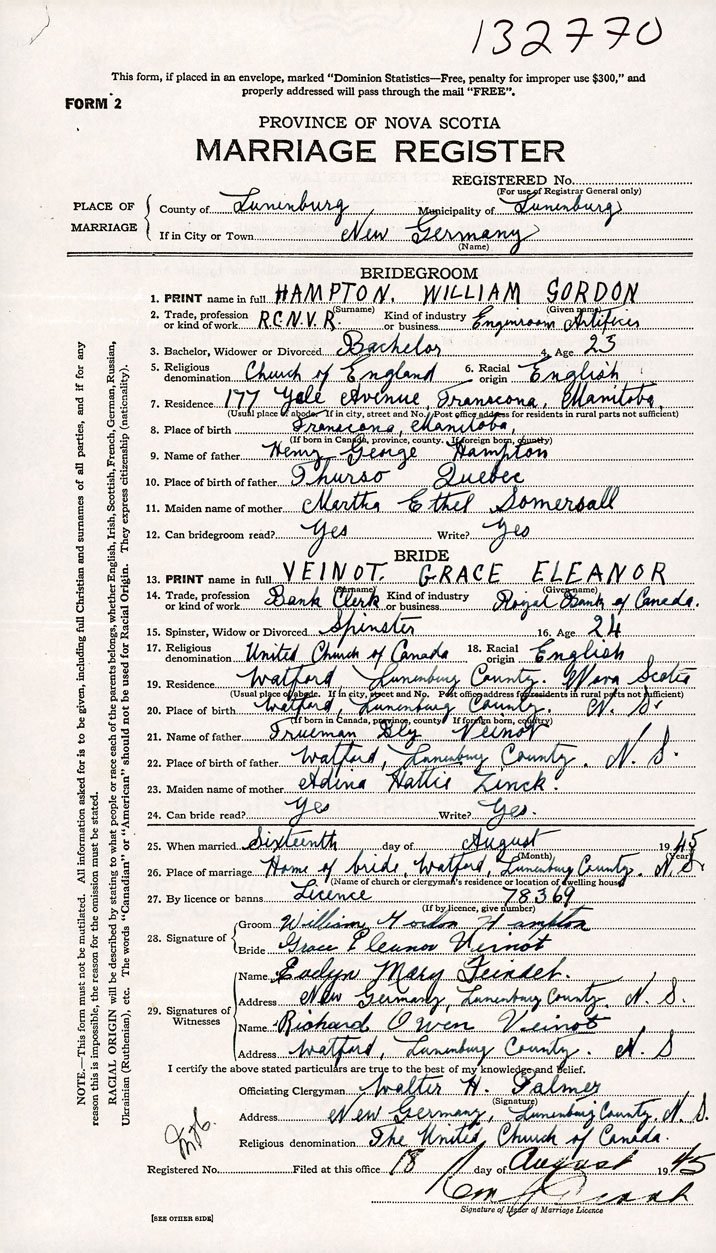 132770
This form, if placed in an envelope, marked “Dominion Statistics—Free, penalty for improper use $300,” and
properly addressed will pass through the mail “FREE”.
FORM 2
PROVINCE OF NOVA SCOTIA
MARRIAGE REGISTER
REGISTERED No.
(For use of Registrar General only)
PLACE OF MARRIAGE
County of Lunenburg Municipality of Lunenburg
If in City or Town New Germany
(Name)
BRIDEGROOM
1. PRINT name in full HAMPTON. WILLIAM GORDON
(Surname) (Given name)
2. Trade, profession or kind of work R.C.N.V.R. Kind of industry or business Engineroom Artificer
3. Bachelor, Widower or Divorced Bachelor 4. Age 23
5. Religious denomination Church of England 6. Racial origin English
7. Residence 177 Yale Avenue, Transcona, Manitoba,
(Usual place of abode. If in city, street and No. Post office address for residents in rural parts not sufficient)
8. Place of birth Transcona, Manitoba,
(If born in Canada, province, county. If foreign born, country)
9. Name of father Henry George Hampton
10. Place of birth of father Thurso Quebec
11. Maiden name of mother Martha Ethel Somersall
12. Can bridegroom read? Yes Write? Yes
BRIDE
13. PRINT name in full VEINOT. GRACE ELEANOR
(Surname) (Given name)
14. Trade, profession or kind of work Bank Clerk Kind of industry or business Royal Bank of Canada.
15. Spinster, Widow or Divorced Spinster 16. Age 24
17. Religious denomination United Church of Canada 18. Racial origin English
19. Residence Watford, Lunenburg County. Nova Scotia
(Usual place of abode. If in city, street and No. Post office address for residents in rural parts not sufficient)
20. Place of birth Watford, Lunenburg County. N. S.
(If born in Canada, province, county If foreign born, country)
21. Name of father Trueman Sly Veinot
22. Place of birth of father Watford, Lunenburg County. N. S.
23. Maiden name of mother Adina Hattie Zinck.
24. Can bride read? Yes Write? Yes.
25. When married Sixteenth day of August 1945
(Month) (Year)
26. Place of marriage Home of bride, Watford, Lunenburg County. N.S.
(Name of church or clergyman's residence or location of dwelling house)
27. By licence or banns Licence 78369
(If by licence, give number)
28. Signature of
Groom William Gordon Hampton
Bride Grace Eleanor Veinot
29. Signatures of Witnesses
Name Evelyn Mary Feindel.
Address New Germany, Lunenburg County. N. S.
Name Richard Owen Veinot
Address Watford, Lunenburg County. N. S
I certify the above stated particulars are true to the best of my knowledge and belief.
Officiating Clergyman Walter H. Palmer
(Signature)
Address New Germany, Lunenburg County. N. S.
Religious denomination The United Church of Canada.
Registered No. Filed at this office 18 day of August 1945
Signature of Issuer of Marriage Licence
[SEE OTHER SIDE]
NOTE.—This form must not be mutilated. All information asked for is to be given, including full Christian and surnames of all parties, and if for any
reason this is impossible, the reason for the omission must be stated.
RACIAL ORIGIN will be described by stating to what people or race each of the parents belongs, whether English, Irish, Scottish, French, German, Russian,
Ukrainian (Ruthenian), etc. The words “Canadian” or “American” should not be used for Racial Origin. They express citizenship (nationality).